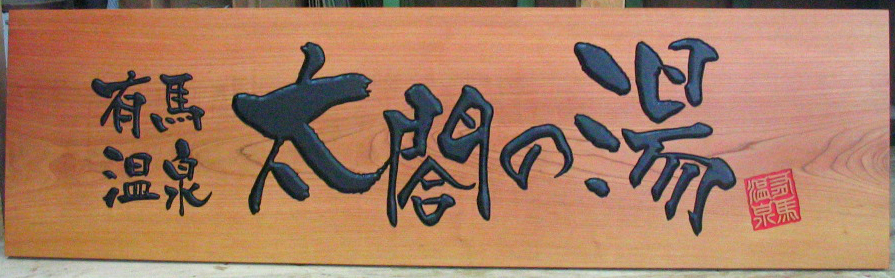 有馬
温泉
太閤の湯
有馬
温泉